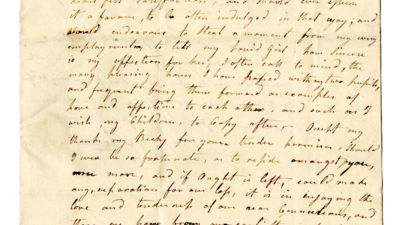 it a favour, to be often indulged in that way; and
would endeavour to steal a moment from my every
employment, to tell my good Girl, how sincere
is my affection for her, I often call to mind, the
many pleasing hours I have passed with my two pupils,
and frequent bring them forward as examples of
love and affections to each other, and such as I
wish my Children, to Copy after. Accept my
thanks my Becky for your tender promises, should
I ever be so fortunate, as to reside amongst you,
more, and if Aught is left, could made
any reparation for our loss, it is in enjoying the
love and tenderness of our near Connections, and